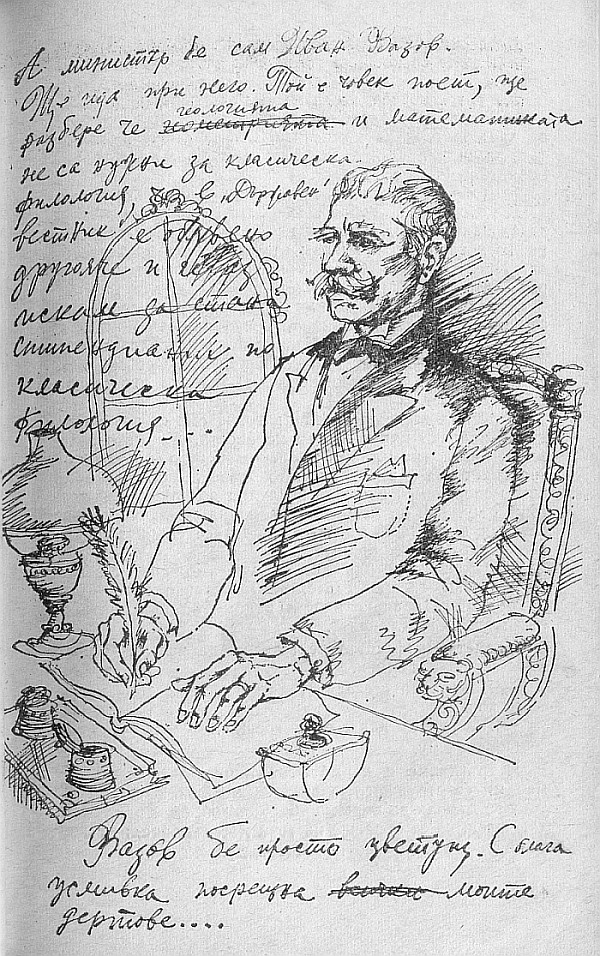 А министър бе сам Иван Вазов.
Ще ида при него. Той е човек поет, ще
геологията
разбере че геометрията и математиката
не са нужни за класическа
филология, че в „Държавен"
вестник е обявено
другояче и че аз
искам да стана
стипендиант по
класическа
филология....
Вазов бе просто цветущ. С блага
усмивка посрещна всички моите
дертове....